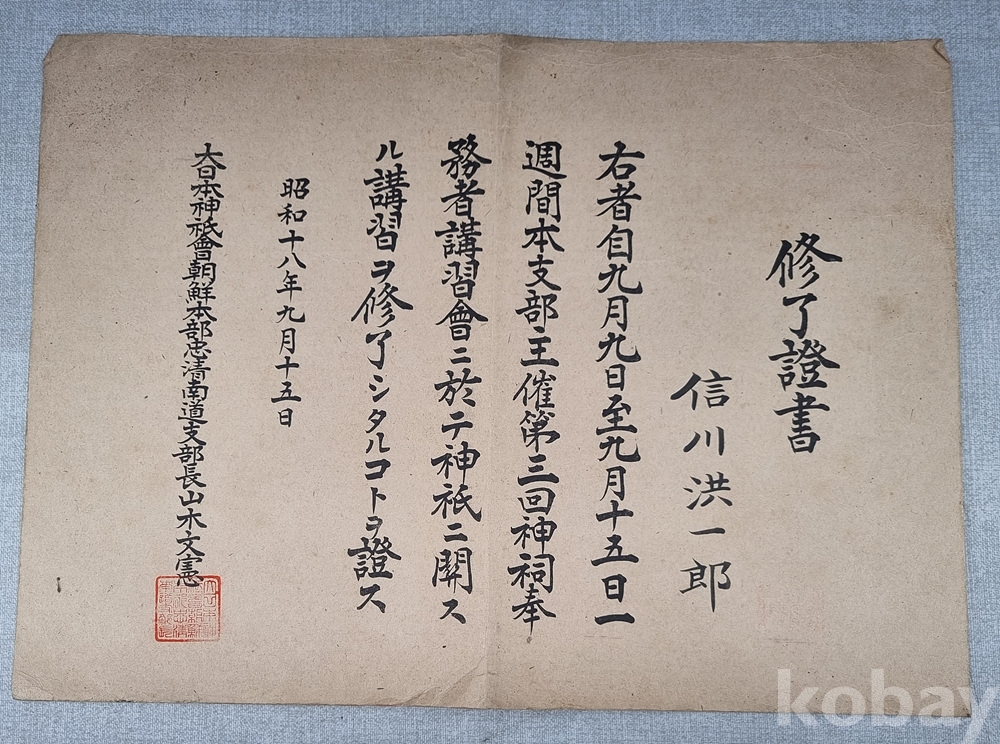 修了證書
信川洪一郎
右者自九月九日至九月十五日一
週間本支部主催第三回神祠奉
務者講習會ニ於テ神祇ニ關ス
ル講習ヲ修了シタルコトヲ證ス
昭和十八年九月十五日
大日本神祇會朝鮮本部忠清南道支部長山木文憲
kobay